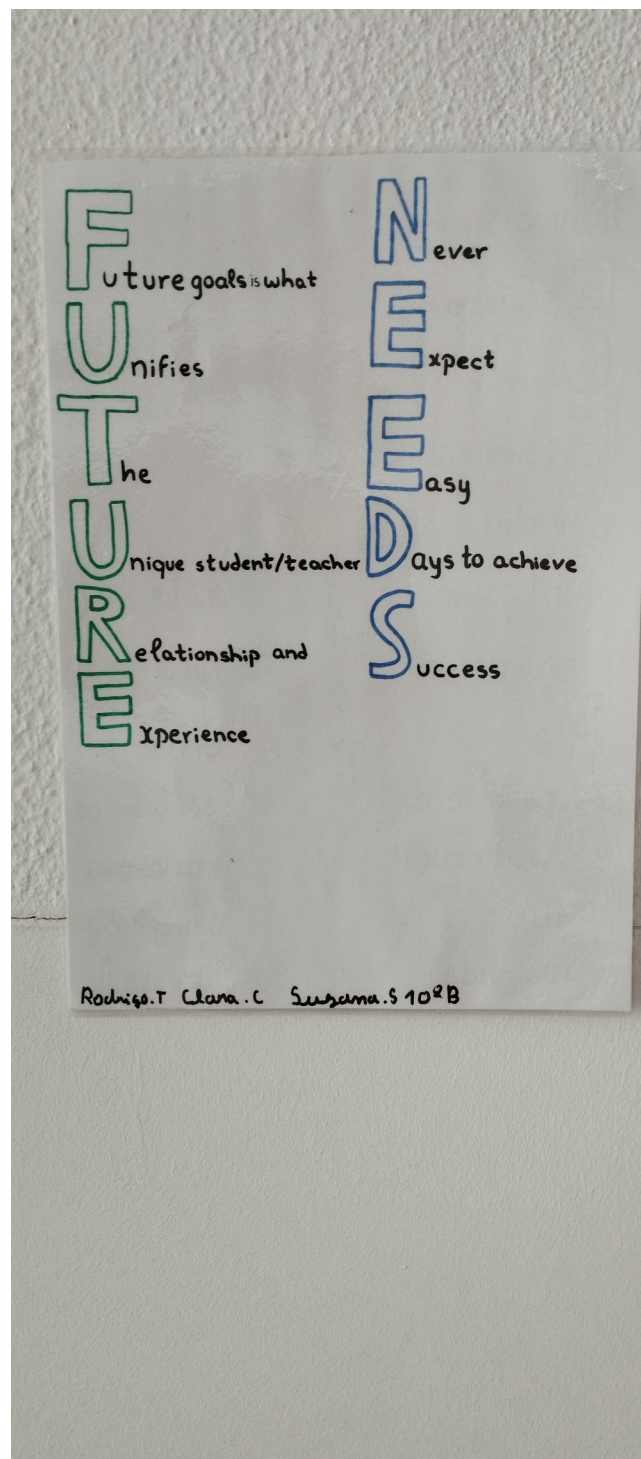 Future goals is what
Unifies
The
Unique student/teacher
Relationship and
Experience
Never
Expect
Easy
Days to achieve
Success
Rodrigo.T Clara.C Susana.S 10ºB